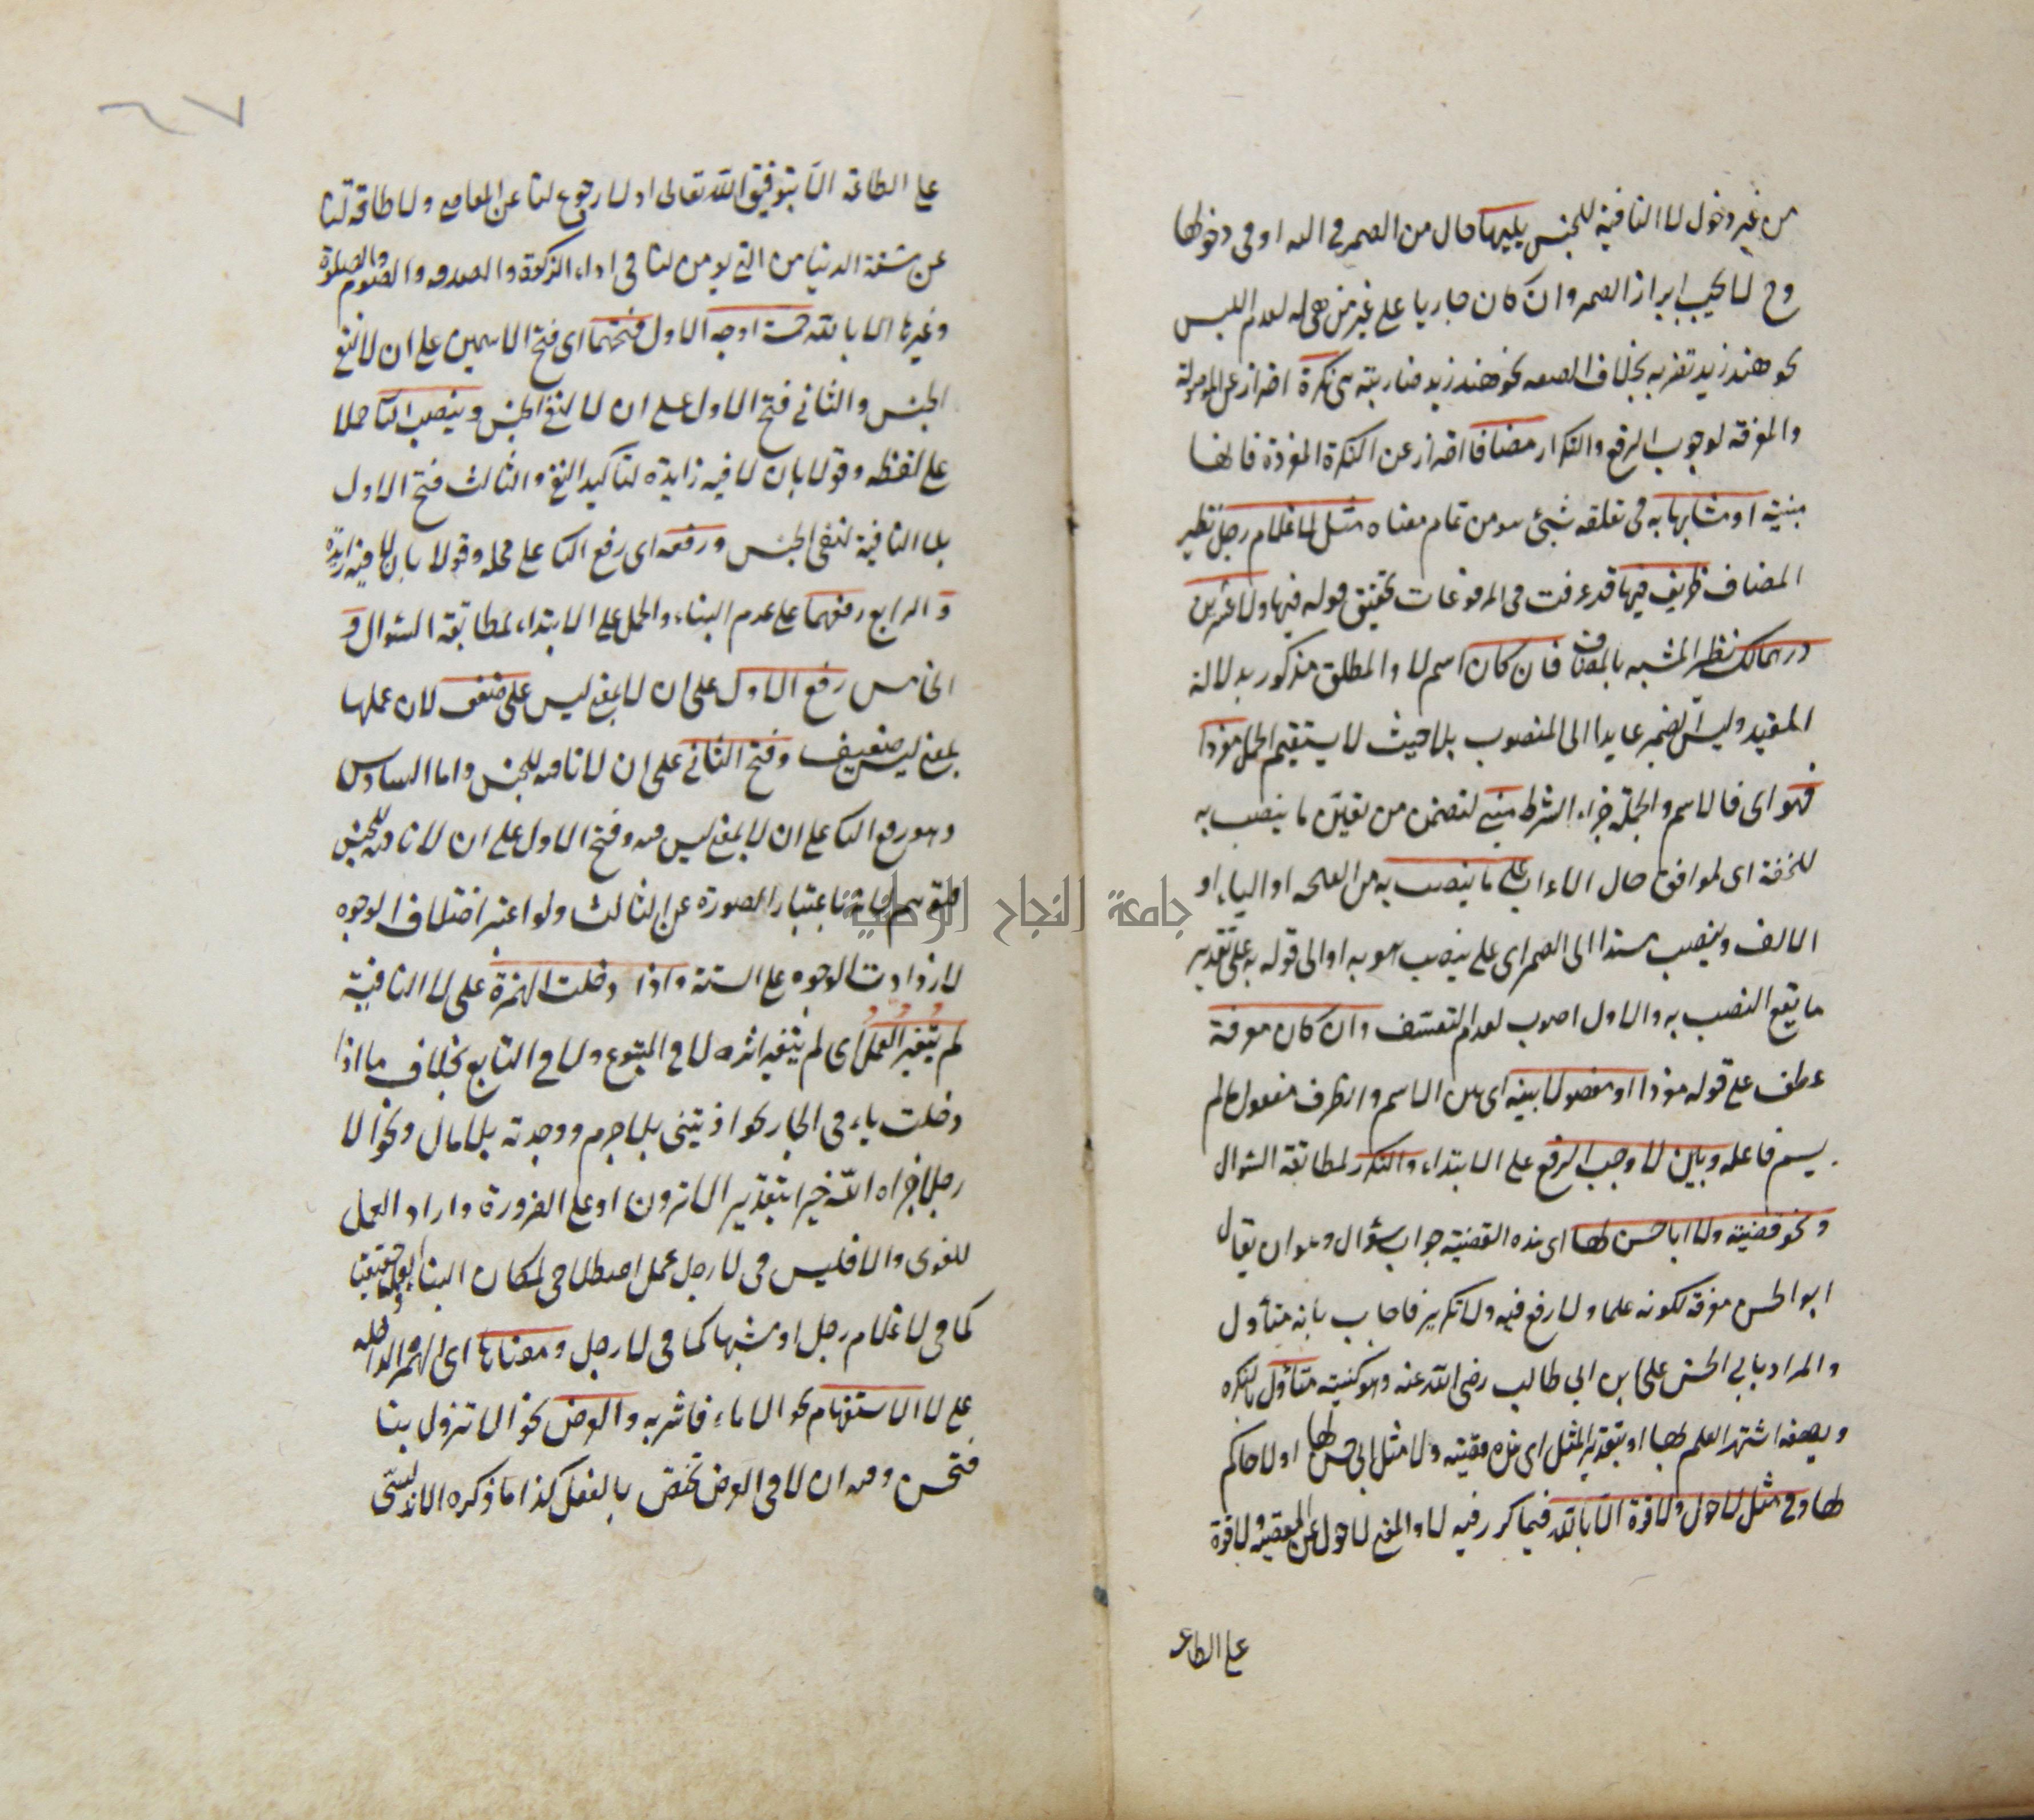 من غير دخول لا النافية للجنس يليها حال من الضمير في اليه او في دخولها
وح لا يجب ابراز الضمير وان كان جاريا على غير من هي له لعدم اللبس
نحو هند زيد تضربه بخلاف الصفه نحو هند زيد ضاربته هي نكرة احتراز عن
والمعرفة لوجوب الرفع والتكرار مضافا احتراز عن النكرة المفردة فانها
مبنية او مشابها به في تعلقه بشئ هو من تمام معناه مثل لا غلام رجل نظير
المضاف ظريف فيها قد عرفت في المرفوعات تحقيق قوله فيها ولا عشرين
درهما لك نظير المشبه بالمضاف فان كان اسم لا والمطلق مذكور بدلالة
المقيد وليس الضمير عايدا الى المنصوب بلا حيث لا يستقيم الحمل مفردا
فهو اى فالاسم والجملة جزاء الشرط مبني لتضمن من تعين ما ينصب به
للخفة اى لموافق حال على ما ينصب به من الفتحه او الياء او
الالف وينصب مسندا الى الضمير اى على ينصب هو به او الى قوله به على تقدير
ما يقع النصب به والاول اصوب لعدم التعسف وان كان معرفة
عطف على قوله مفردا او مفصولا بينه اى بين الاسم والظرف مفعول ما لم
يسم فاعله وبين لا وجب الرفع على الابتداء والتكرير لمطابقة السؤال
ونحو قضية ولا ابا حسن لها اى هذه القضية جواب سؤال وهو ان يقال
ابو الحسن معرفة لكونه علما ولا رفع فيه ولا تكرير فاجاب بانه متأول
والمراد بابي الحسن على ابن ابي طالب رضى الله عنه وهو كنيته متأول بالنكره
وبصفة اشتهر العلم بها او بتقدير المثل اى هذه قضية ولا مثل ابي حسن لها او لا حاكم
لها وفي مثل لا حول ولا قوة الا بالله فيما كرر فيه لا والمعنى لا حول عن المعصية ولا قوة
على الطاعه
٢٧
على الطاعة الا بتوفيق الله تعالى او لا رجوع لنا عن المعاصي ولا طاقة لنا
عن مشقة الدنيا من التي لا بد من لنا في اداء الزكوة والصدقه والصوم والصلوة
وغيرها الا بالله خمسة اوجه الاول فتحهما اى فتح الاسمين على ان لا لنفي
الجنس والثاني فتح الاول على ان لا لنفي الجنس وينصب الثاني حملا
على لفظه وقولا بان لا فيه زايدة لتأكيد النفي والثالث فتح الاول
بلا النافية لنفي الجنس ورفعه اى رفع الثاني على محله وقولا بان لا فيه زايدة
والرابع رفعهما على عدم البناء والحمل على الابتداء لمطابقة السؤال و
الخامس رفع الاول على ان لا بمعنى ليس على ضعف لان عملها
بمعنى ليس ضعيف وفتح الثاني على ان لا نافيه للجنس واما السادس
وهو رفع الثاني على ان لا بمعنى ليس فيه وفتح الاول على ان لا نافيه للجنس
باعتبار الصورة عن الثالث ولو اعتبر اختلاف الوجوه
لازدادت الوجوه على الستة واذا دخلت الهمزة على لا النافية
لم يتغير العمل اى لم يتغير اثره لا في المتبوع ولا في التابع بخلاف ما اذا
دخلت باء في الجار نحو اذيتني بلا جرم ووجدته بلا مال ونحو الا
رجلا جزاه الله خيرا بتقدير الا ترون او على الضرورة واراد العمل
اللغوى والا فليس في لا رجل عمل اصطلاحي لمكان البناء حقيقيا
كما في لا غلام رجل او مشبها كما في لا رجل ومعناها اى الهمزة الداخله
على لا الاستفهام نحو الا ماء فاشربه والعرض نحو الا تنزول بنا
فتحسن وفيه ان لا في العرض تختص بالفعل كذا ما ذكره الاندلسي
جامعة النجاح الوطنية